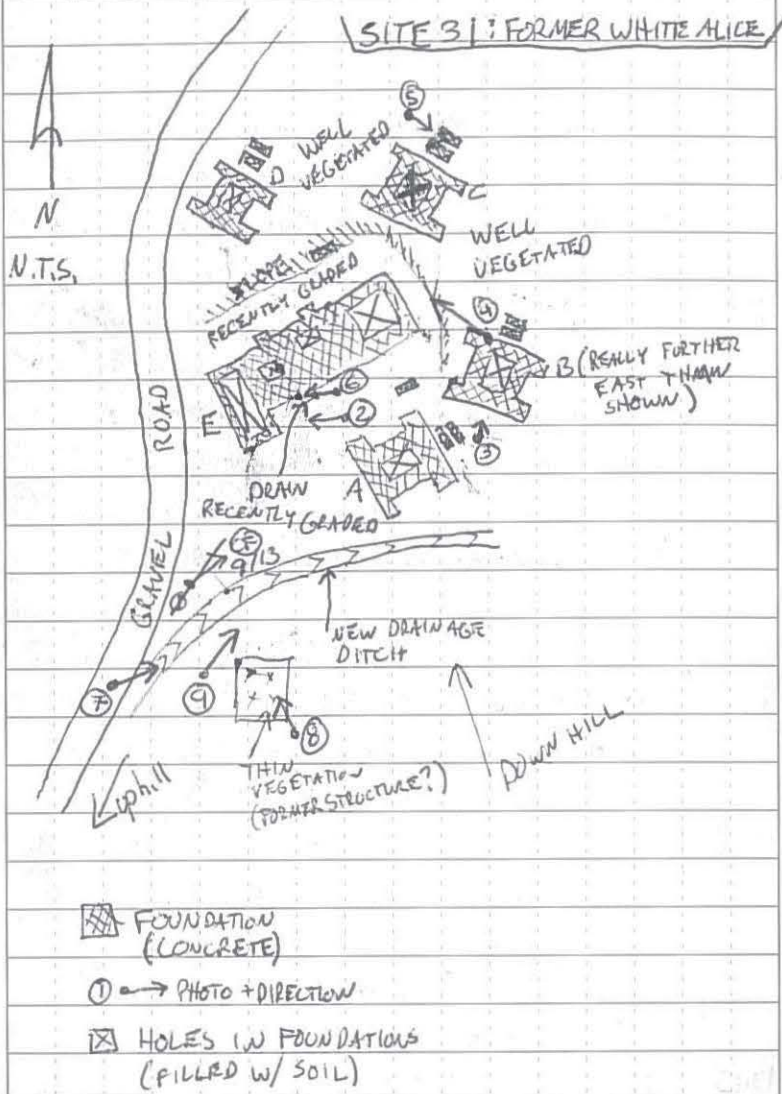 SITE 31: FORMER WHITE ALICE
N
N.T.S.
5
WELL
VEGETATED
D
C
WELL
VEGETATED
SLOPE
RECENTLY GRADED
4
B (REALLY FURTHER
EAST THAN
SHOWN)
6
2
E
3
A
DRAIN
RECENTLY GRADED
GRAVEL ROAD
9/13
NEW DRAINAGE
DITCH
7
9
8
THIN
VEGETATION
(FORMER STRUCTURE?)
DOWN HILL
uphill
FOUNDATION
(CONCRETE)
1 → PHOTO + DIRECTION
HOLES IN FOUNDATIONS
(FILLED W/ SOIL)